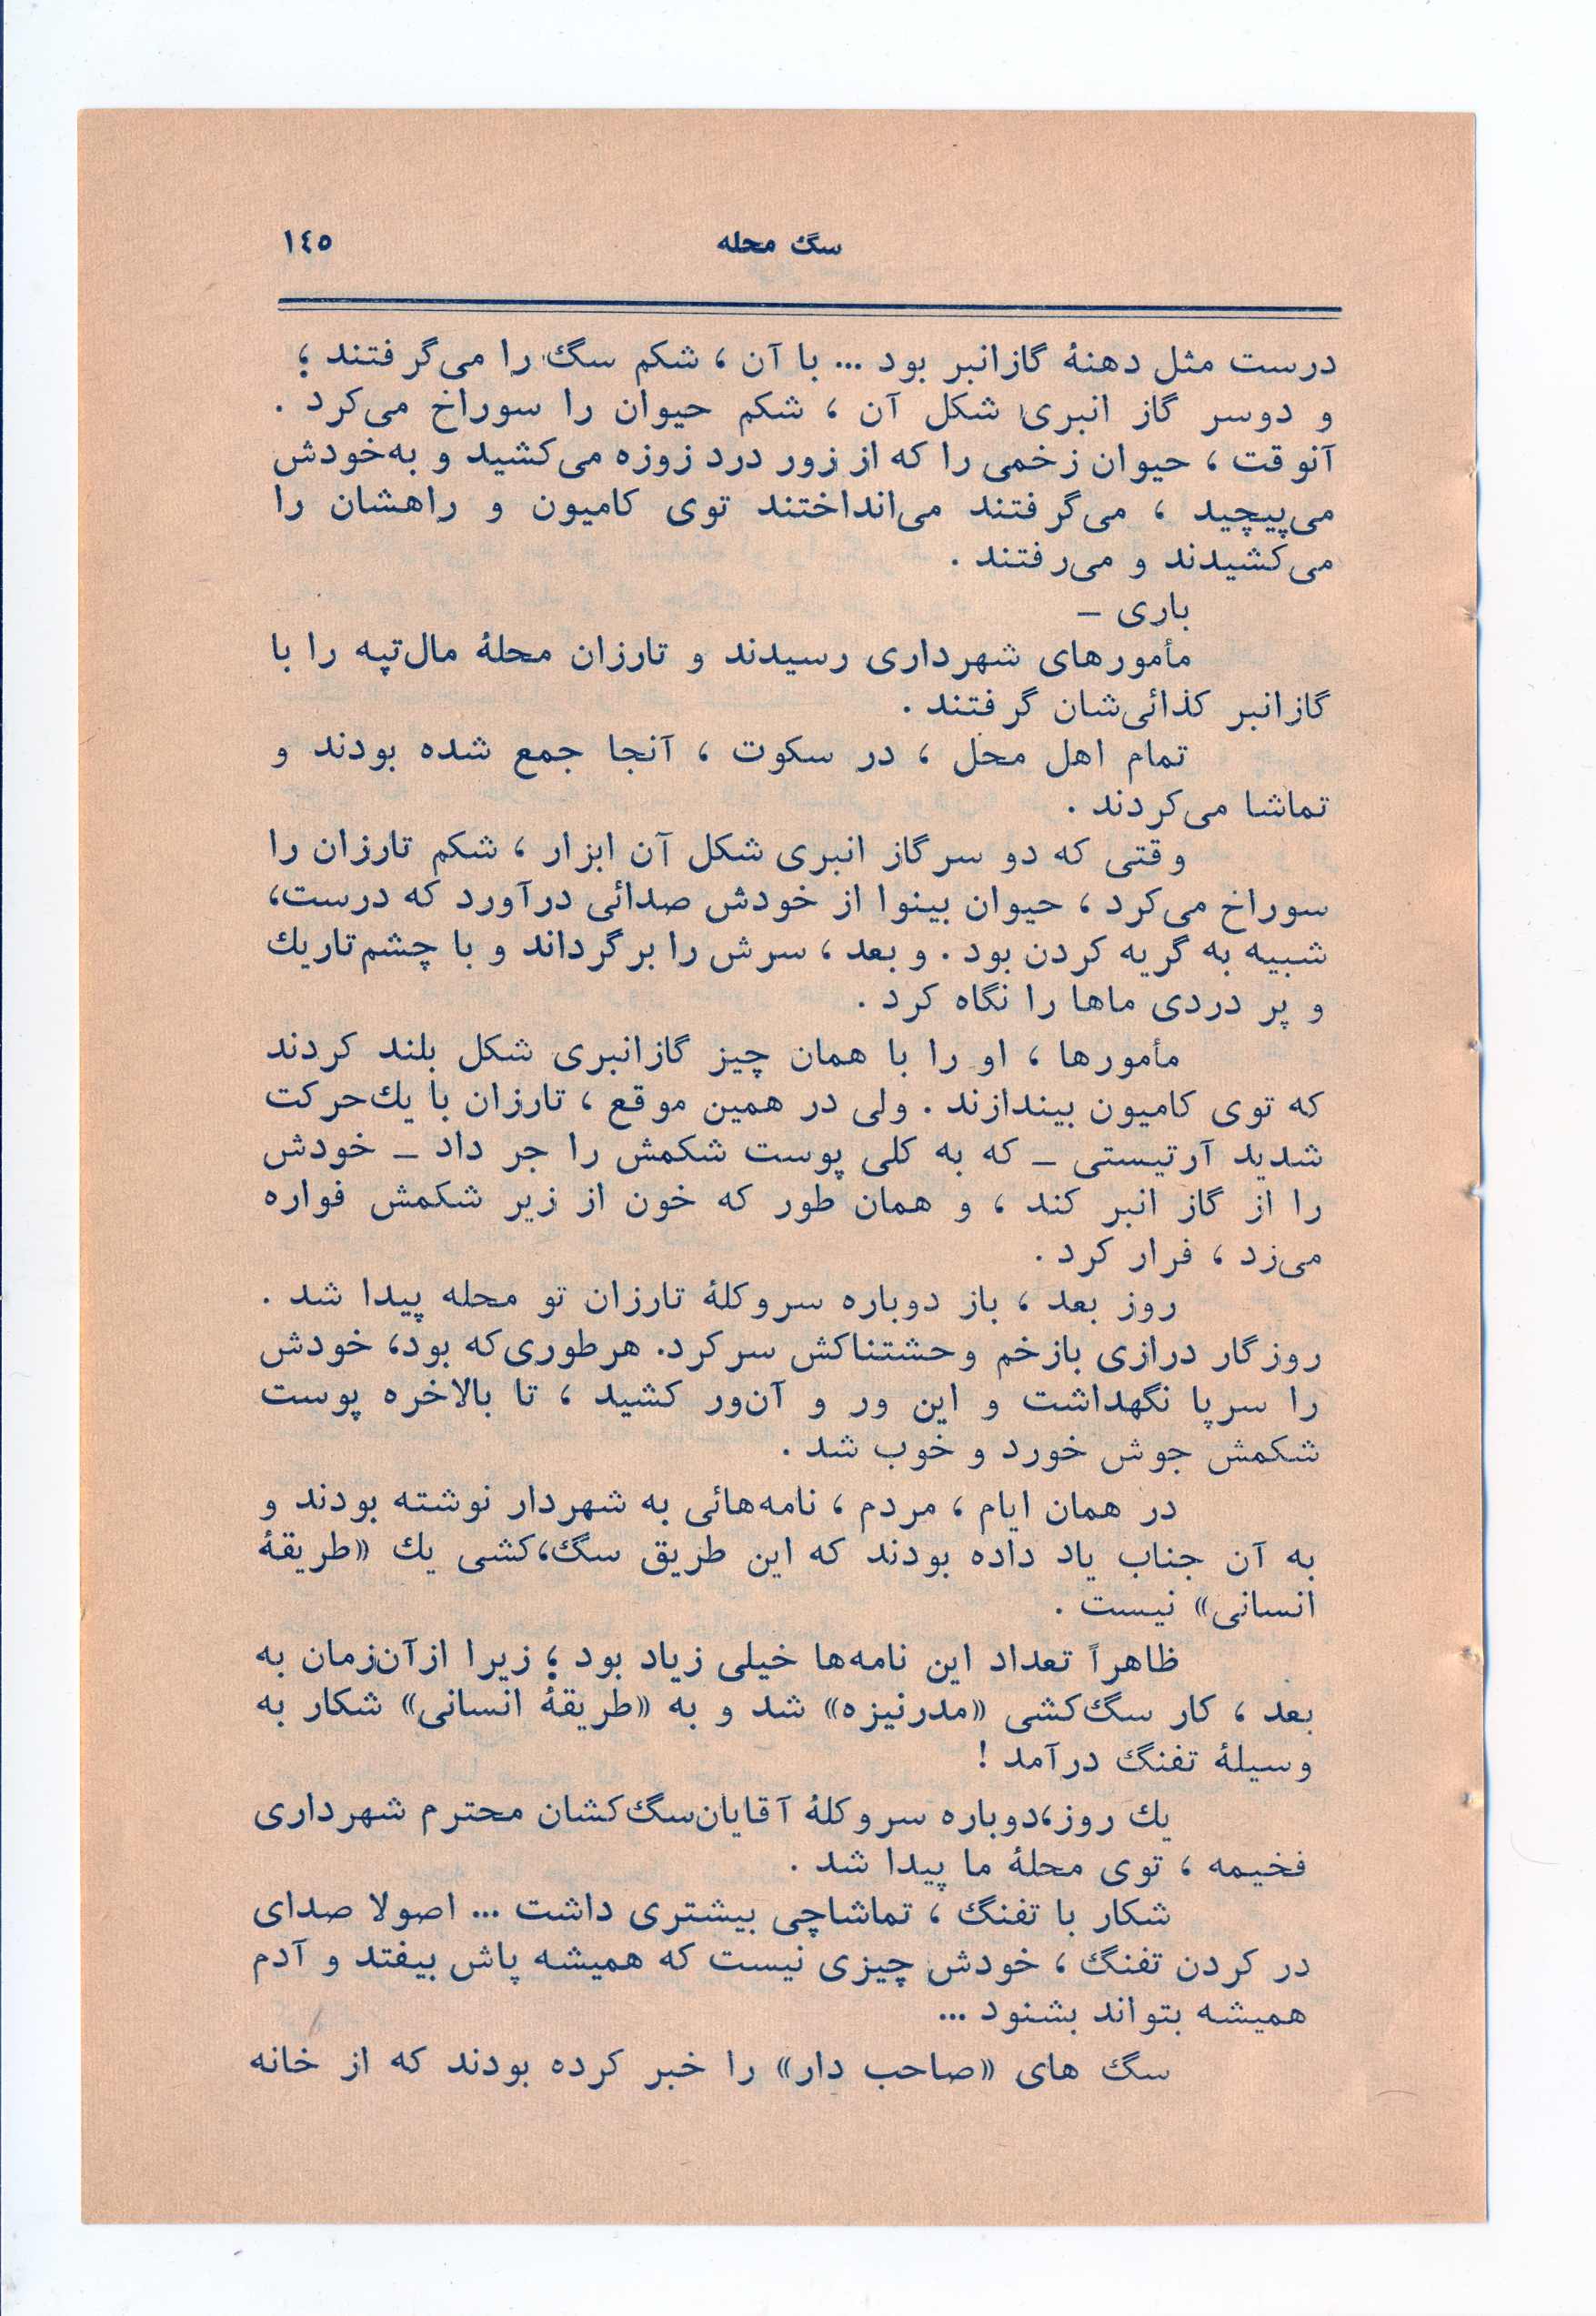 سگ محله ١٤٥
درست مثل دهنهٔ گازانبر بود ... با آن ، شکم سگ را می‌گرفتند ؛
و دوسر گاز انبری شکل آن ، شکم حیوان را سوراخ می‌کرد .
آنوقت ، حیوان زخمی را که از زور درد زوزه می‌کشید و به‌خودش
می‌پیچید ، می‌گرفتند می‌انداختند توی کامیون و راهشان را
می‌کشیدند و می‌رفتند .
باری ـ
مأمورهای شهرداری رسیدند و تارزان محلهٔ مال‌تپه را با
گازانبر کذائی‌شان گرفتند .
تمام اهل محل ، در سکوت ، آنجا جمع شده بودند و
تماشا می‌کردند .
وقتی که دو سرگاز انبری شکل آن ابزار ، شکم تارزان را
سوراخ می‌کرد ، حیوان بینوا از خودش صدائی درآورد که درست،
شبیه به گریه کردن بود . و بعد ، سرش را برگرداند و با چشم تاریك
و پر دردی ماها را نگاه کرد .
مأمورها ، او را با همان چیز گازانبری شکل بلند کردند
که توی کامیون بیندازند . ولی در همین موقع ، تارزان با یك‌حرکت
شدید آرتیستی ـ که به کلی پوست شکمش را جر داد ـ خودش
را از گاز انبر کند ، و همان طور که خون از زیر شکمش فواره
می‌زد ، فرار کرد .
روز بعد ، باز دوباره سروکلهٔ تارزان تو محله پیدا شد .
روزگار درازی بازخم وحشتناکش سرکرد. هرطوری‌که بود، خودش
را سرپا نگهداشت و این ور و آن‌ور کشید ، تا بالاخره پوست
شکمش جوش خورد و خوب شد .
در همان ایام ، مردم ، نامه‌هائی به شهردار نوشته بودند و
به آن جناب یاد داده بودند که این طریق سگ،کشی یك «طریقهٔ
انسانی» نیست .
ظاهراً تعداد این نامه‌ها خیلی زیاد بود ؛ زیرا ازآن‌زمان به
بعد ، کار سگ‌کشی «مدرنیزه» شد و به «طریقهٔ انسانی» شکار به
وسیلهٔ تفنگ درآمد !
یك روز،دوباره سروکلهٔ آقایان‌سگ‌کشان محترم شهرداری
فخیمه ، توی محلهٔ ما پیدا شد .
شکار با تفنگ ، تماشاچی بیشتری داشت ... اصولا صدای
در کردن تفنگ ، خودش چیزی نیست که همیشه پاش بیفتد و آدم
همیشه بتواند بشنود ...
سگ های «صاحب دار» را خبر کرده بودند که از خانه